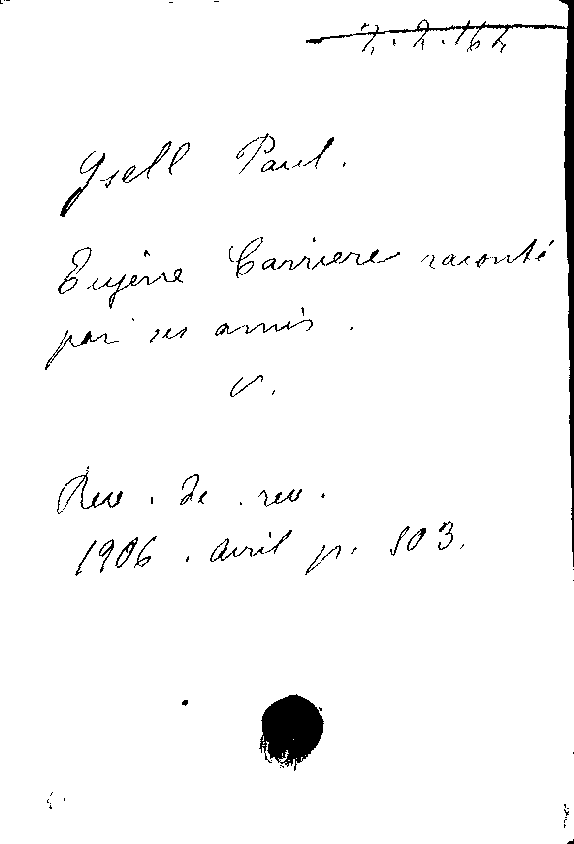 Gsell Paul.
Eugène Carriere raconté
par ses amis.
v.
Rev. de rev.
1906. avril p. 503.